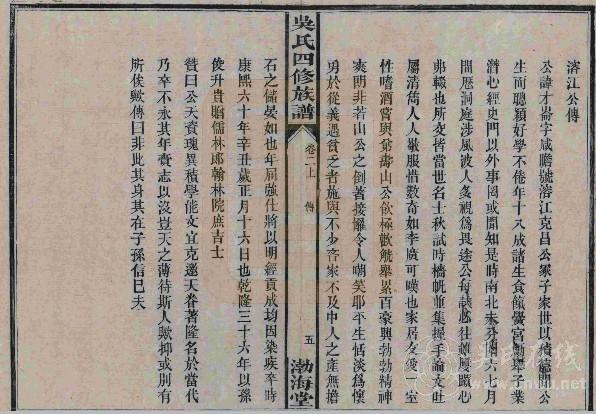 溶江公傳
公諱才崙字咸瞻號溶江克昌公冢子家世以德範聞公
生而聰穎好學不倦年十八成諸生食餼黌宮勤舉子業
潛心經史門以外事罔或聞知是時南北未分闈六七月
間歷洞庭涉風波人多視為畏途公每試必往雖屢蹶心
弗輟也所交皆當世名士秋試時檣帆並集握手論文吐
屬清簡人人歎服惜數奇如李廣可嘆也家居友愛一室
性嗜酒嘗與弟壽山公飲極歡觥舉累百豪興勃勃精神
爽朗非若山公之倒著接䍦令人嘲笑耶平生恬淡為懷
勇於從義遇貧乏者施與不少吝家不及中人之產無擔
石之儲晏如也年屆強仕將以明經貢成均因染疾卒時
康熙六十年辛丑歲正月十六日也乾隆三十六年以孫
俊升貴貤儒林郎翰林院庶吉士
贊曰公天資瑰異積學能文宜克邀天眷著隆名於當代
乃卒不永其年賫志以沒豈天之薄待斯人歟抑或別有
所俟歟傳曰非此其身其在子孫信已夫
吳氏四修族譜
卷二上
傳
五
渤海堂